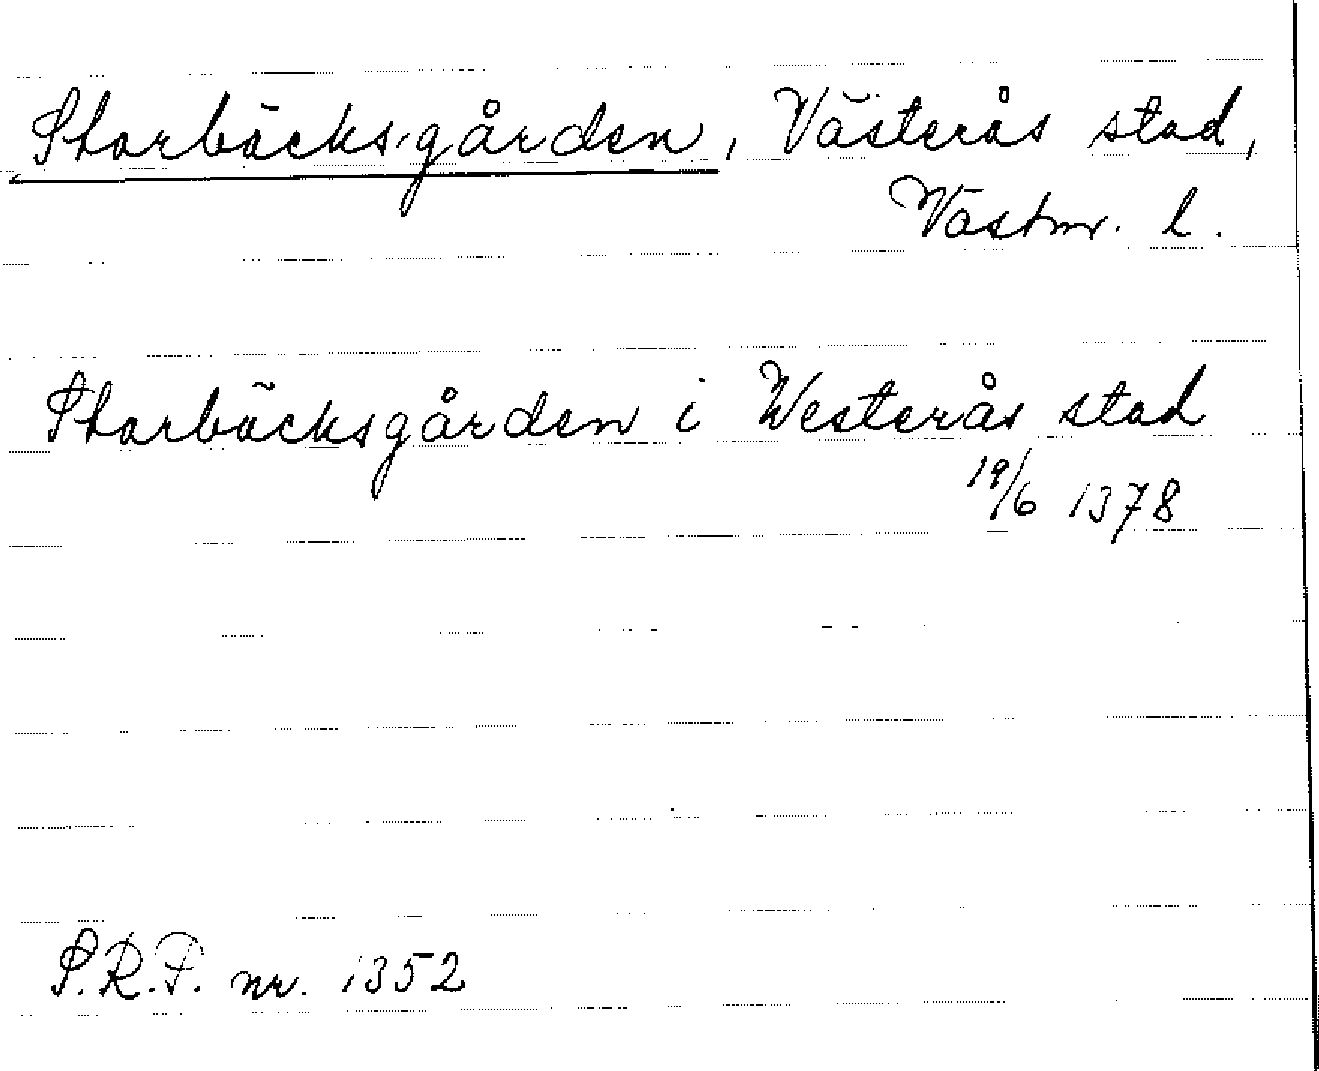 Starbäcks-gården, Västerås stad,
Västm. l.
Starbäcksgården i Westerås stad
19/6 1378
S.R.P. nr. 1352